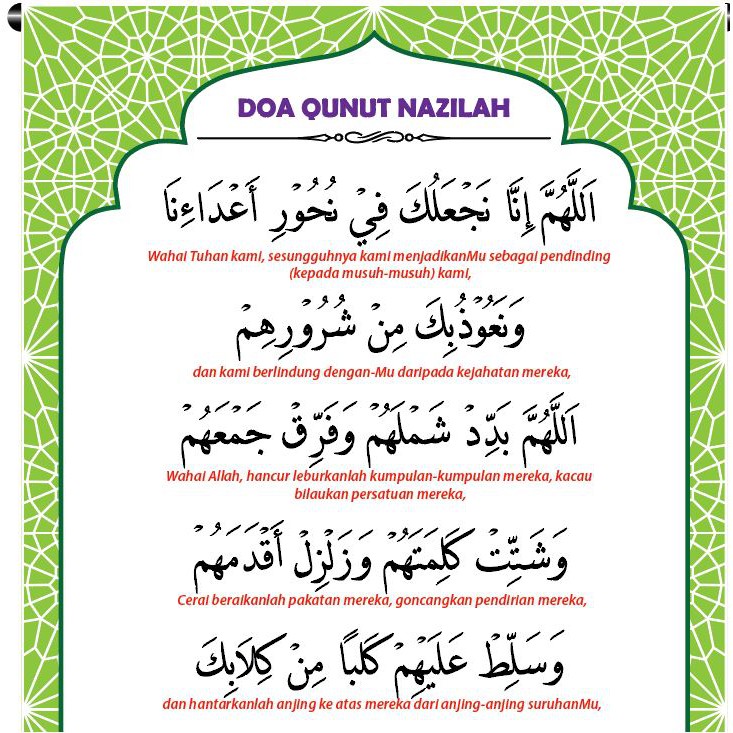 DOA QUNUT NAZILAH
اَللَّهُمَّ إِنَّا نَجْعَلُكَ فِيْ نُحُوْرِ أَعْدَاءِنَا
Wahai Tuhan kami, sesungguhnya kami menjadikanMu sebagai pendinding
(kepada musuh-musuh) kami,
وَنَعُوْذُبِكَ مِنْ شُرُوْرِهِمْ
dan kami berlindung dengan-Mu daripada kejahatan mereka,
اَللَّهُمَّ بَدِّدْ شَمْلَهُمْ وَفَرِّقْ جَمْعَهُمْ
Wahai Allah, hancur leburkanlah kumpulan-kumpulan mereka, kacau
bilaukan persatuan mereka,
وَشَتِّتْ كَلِمَتَهُمْ وَزَلْزِلْ أَقْدَمَهُمْ
Cerai beraikanlah pakatan mereka, goncangkan pendirian mereka,
وَسَلِّطْ عَلَيْهِمْ كَلْبًا مِنْ كِلَابِكَ
dan hantarkanlah anjing ke atas mereka dari anjing-anjing suruhanMu,